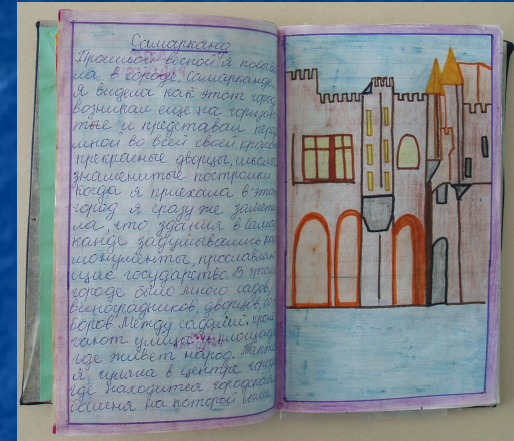 Самарканд
Прошлой весной я побыва
ла в городе Самарканде.
Я видела как этот город
возникал еще на горизон
те и представал передо
мной во всей своей красе
прекрасные дворцы, школы
знаменитые постройки
Когда я приехала в этот
город я сразу же замети
ла, что здания в Самар
канде задумывались как
монументы, прославляю
щие государство. В этом
городе было много садов,
виноградников, дворцов, со
боров. Между садами проле
гают улицы и площади
где живет народ. Также
я в центре города
где находится городская
башня на которой были